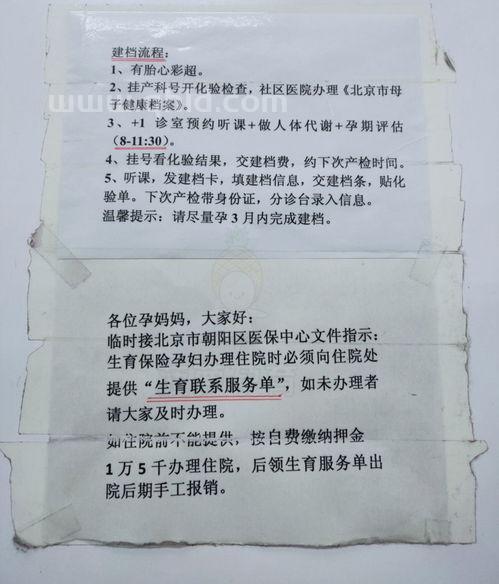 建档流程：
1、有胎心彩超。
2、挂产科号开化验检查，社区医院办理《北京市母
子健康档案》。
3、+1 诊室预约听课+做人体代谢+孕期评估
（8-11:30）。
4、挂号看化验结果，交建档费，约下次产检时间。
5、听课，发建档卡，填建档信息，交建档条，贴化
验单。下次产检带身份证，分诊台录入信息。
温馨提示：请尽量孕 3 月内完成建档。
各位孕妈妈，大家好：
临时接北京市朝阳区医保中心文件指示：
生育保险孕妇办理住院时必须向住院处
提供“生育联系服务单”，如未办理者
请大家及时办理。
如住院前不能提供，按自费缴纳押金
1 万 5 千办理住院，后领生育服务单出
院后期手工报销。